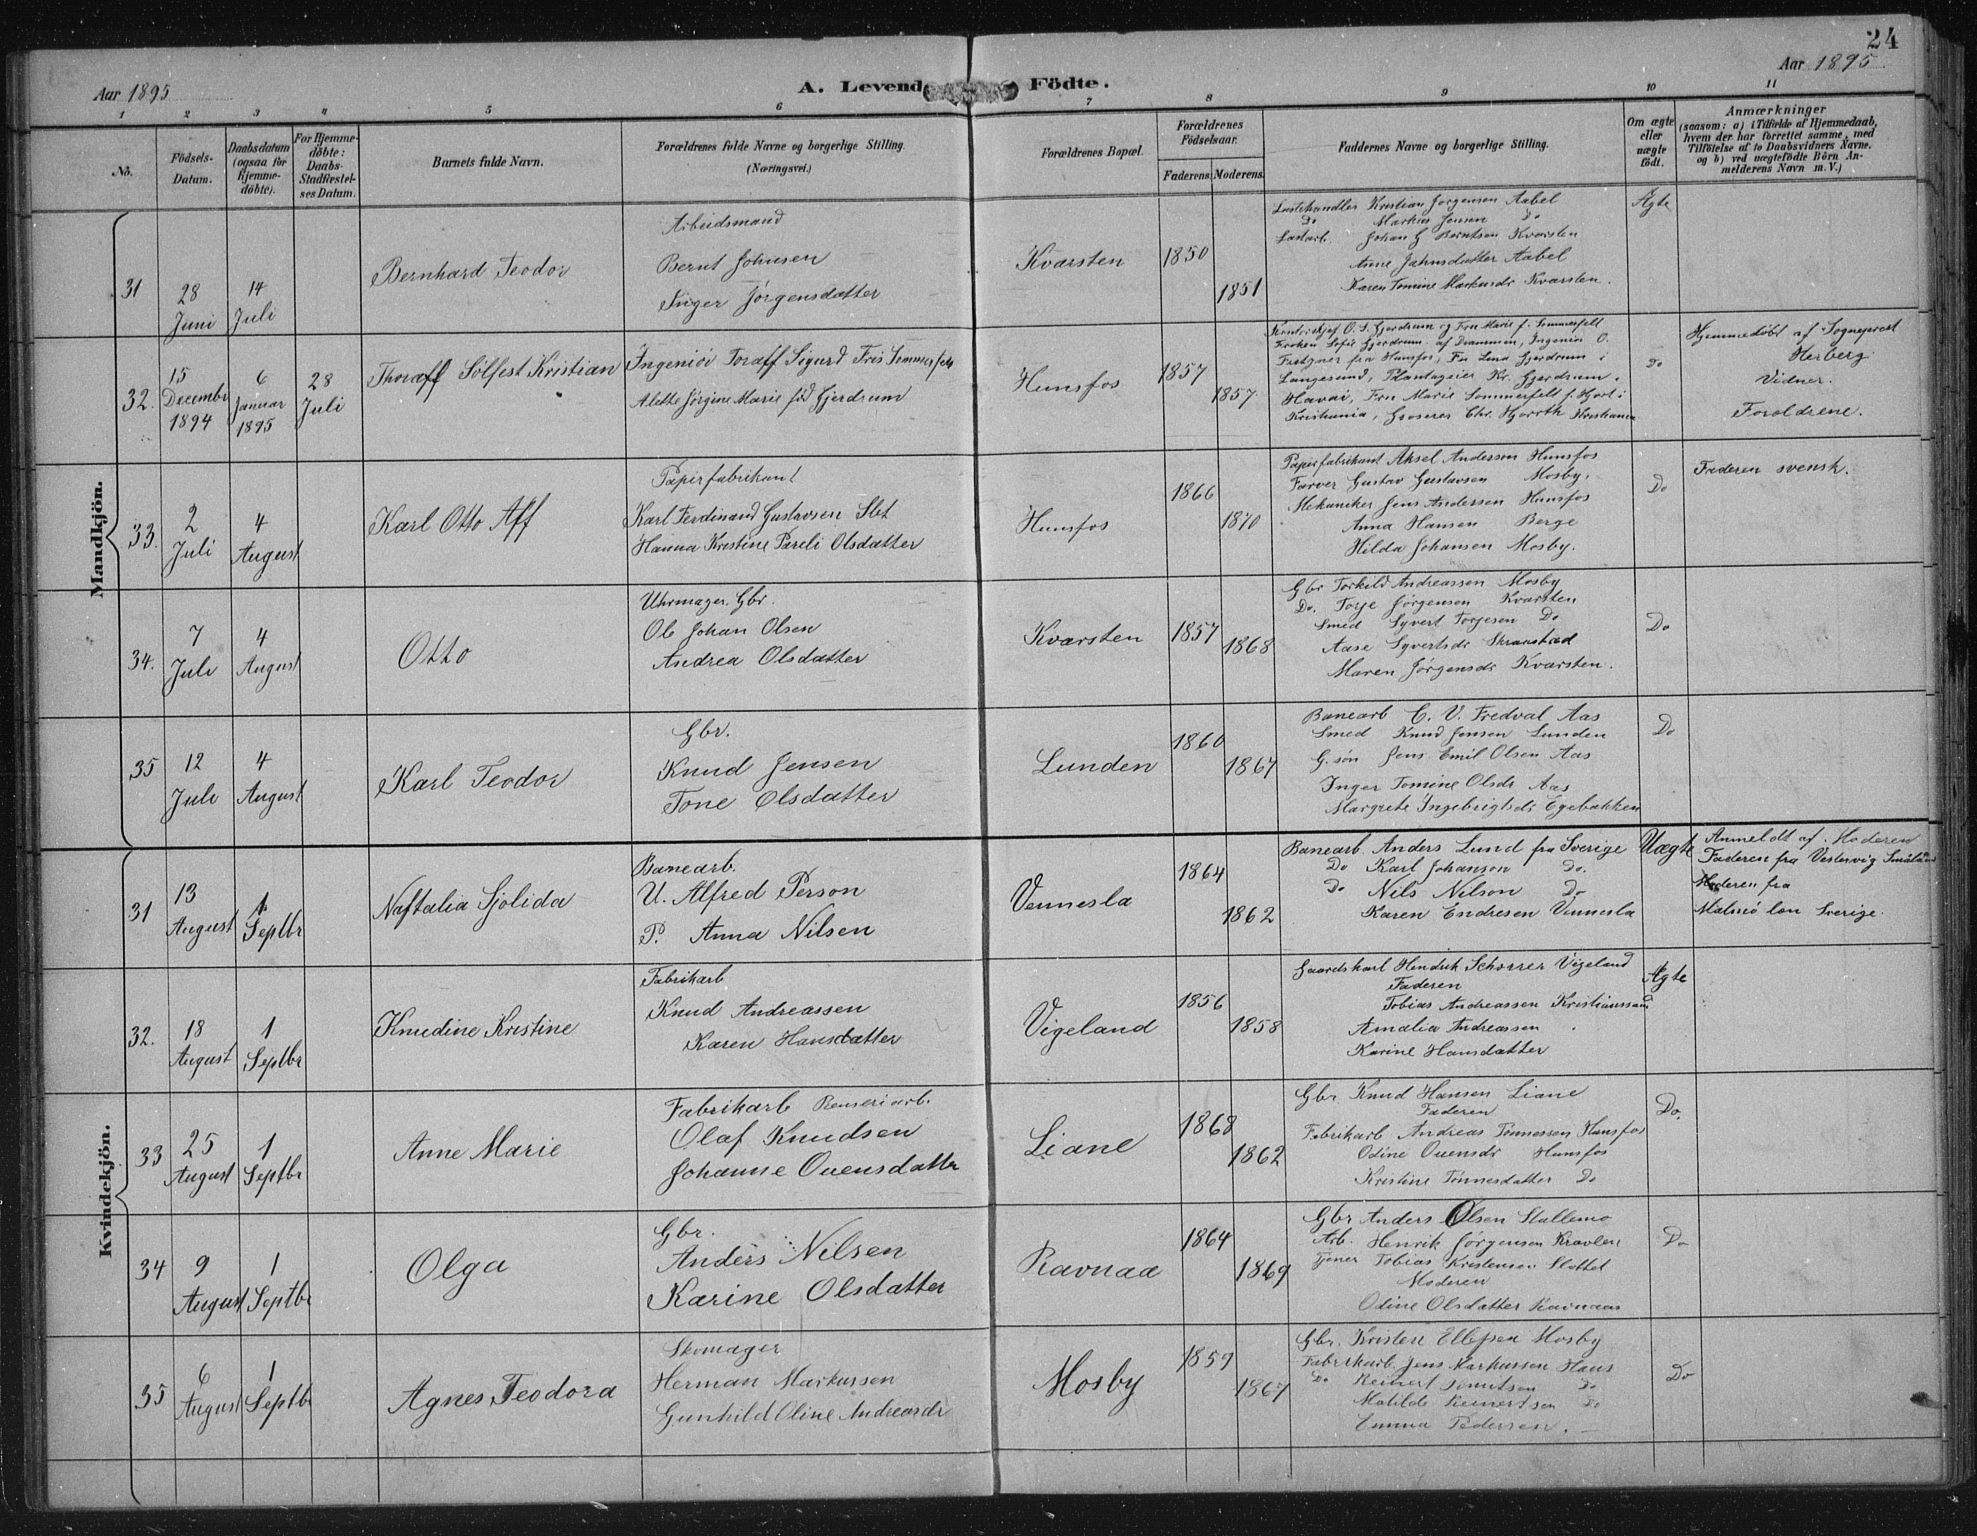 24
Aar 1895
A. Levende Födte.
Aar 1895
1 2 3 4 5 6 7 8 9 10 11
No.
Födsels-Datum.
Daabsdatum (ogsaa for hjemme-döbte).
For Hjemme-döbte: Daabs-Stadfæstel-ses Datum.
Barnets fulde Navn.
Forældrenes fulde Navne og borgerlige Stilling.
(Næringsvei.)
Forældrenes Bopæl.
Forældrenes Födselsaar.
Faderens. Moderens.
Faddernes Navne og borgerlige Stilling.
Om ægte eller uægte födt.
Anmærkninger
(saasom: a) i Tilfælde af Hjemmedaab,
hvem der har forrettet samme, med
Tilföielse af to Daabsvidners Navne.
og b) ved uægtefödte Börn An-
melderens Navn m. V.)
Mandkjön.
31
28 Juni
14 Juli
Bernhard Teodor
Arbeidsmand
Bernt Johnsen
Inger Jörgensdatter
Kvarsten
1850
1851
Lastehandler Kristian Jørgensen Aabel
Do Markus Jensen Do
Lastarb. Johan G Berntsen Kvarsten
Anne Jahnsdatter Aabel
Karen Tomine Markusdr Kvarsten.
Ægte
32.
15 Decembr 1894
6 Januar 1895
28 Juli
Thoralf Solfest Kristian
Ingeniör Toralf Sigurd Friis Sommerfelt
Alette Jörgine Marie föd Gjerdrum
Hunsfos
1857
1857
Kontorchef O. S. Gjerdrum og Fru Marie f. Sommerfelt
Fröken Sofie Gjerdrum af Drammen, Ingeniör O.
fra Hunsfos, Fru Lina Gjerdrum i
Langesund, Plantageier Kr. Gjerdrum,
Havai, Fru Marie Sommerfelt f. Hjort i
Kristiania, Grosserer Chr. Hjorth Kristiania
Do
Hjemmedöbt af Sogneprest
Herberg.
Vidner.
Foroldrene.
33.
2 Juli
4 August
Karl Otto Alf
Papirfabrikant
Karl Ferdinand Gustavsen Slet
Hanna Kristine Pareli Olsdatter
Hunsfos
1866
1870
Papirfabrikant Aksel Anderson Hunsfos
Farver Gustav Gustavsen Mosby.
Mekaniker Jens Andersen Hunsfos
Anna Hansen Berge
Hilda Johansen Mosby.
Do
Faderen svensk.
34.
7 Juli
4 August
Otto
Uhrmager. Gbr.
Ole Johan Olsen
Andrea Olsdatter
Kvarsten
1857
1868
Gbr Torkild Andreassen Mosby
Do. Torje Jörgensen Kvarsten
Smed Syvert Torjesen Do
Aase Syvertsdr Skranstad
Maren Jörgensdr Kvarsten.
Do
35
12 Juli
4 August
Karl Teodor
Gbr.
Knud Jensen
Tone Olsdatter
Lunden
1860
1867
Banearb C. V. Fredval Aas
Smed Knud Jensen Lunden
G. sön Jens Emil Olsen Aas
Inger Tomine Olsdr Aas
Margrete Ingebrigtsdr Egebakken
Do
Kvindekjön.
31
13 August
1 Septbr
Naftalia Sjolida
Banearb.
U. Alfred Person
P. Anna Nilsen
Vennesla
1864
1862
Banearb. Anders Lund fra Sverige
Do Karl Johanson Do.
Do Nils Nilson Do
Karen Endresen Vennesla
Uægte
Anmeldt af Moderen
Faderen fra Vestervig Småland
Moderen fra
Malmö len Sverige.
32.
18 August
1 Septbr
Knudine Kristine
Fabrikarb
Knud Andreassen
Karen Hansdatter
Vigeland
1856
1858
Gaardskarl Hendrik Schorrer Vigeland
Faderen
Tobias Andreassen Kristianssand
Amalia Andreassen
Karine Hansdatter
Ægte
33
25 August
1 Septbr
Anne Marie
Fabrikarb Renseriarb.
Olaf Knudsen
Johanne Ouensdatter
Liane
1868
1862
Gbr Knud Hansen Liane
Faderen
Fabrikarb Andreas Tönnessen Hunsfos
Odine Ouensdr Hunsfos
Kristine Tönnesdatter Do
Do.
34
9 August
1 Septbr
Olga
Gbr.
Anders Nilsen
Karine Olsdatter
Ravnaa
1864
1869
Gbr Anders Olsen Stallemo
Arb. Henrik Jörgensen Kravlen
Tjener Tobias Kristensen Slottet
Moderen
Odine Olsdatter Ravnaas
Do
35
6 August
1 Septbr
Agnes Teodora
Skomager
Herman Markussen
Gunhild Oline Andreasdr
Mosby
1859
1867
Gbr. Kristen Ellefsen Mosby
Fabrikarb Jens Markussen Haus
Do Reinert Do
Matilde Reinertsen Do
Emma Pedersen. —
Do